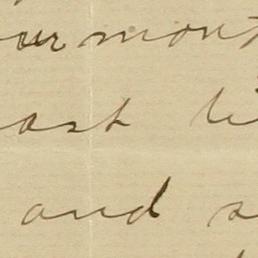 our mont
ast li
and s